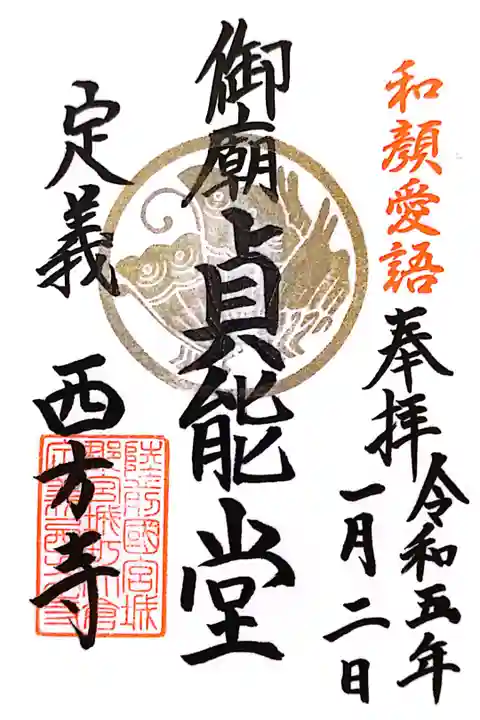 和顔愛語
奉拝
令和五年
一月二日
御廟
貞能堂
定義
西方寺